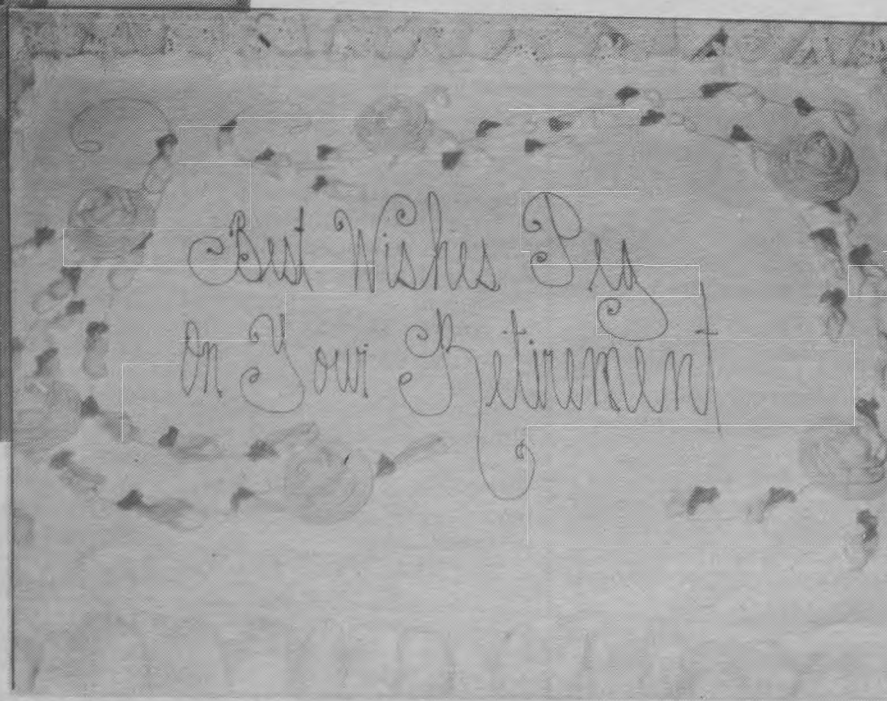 Best Wishes Peg
On Your Retirement